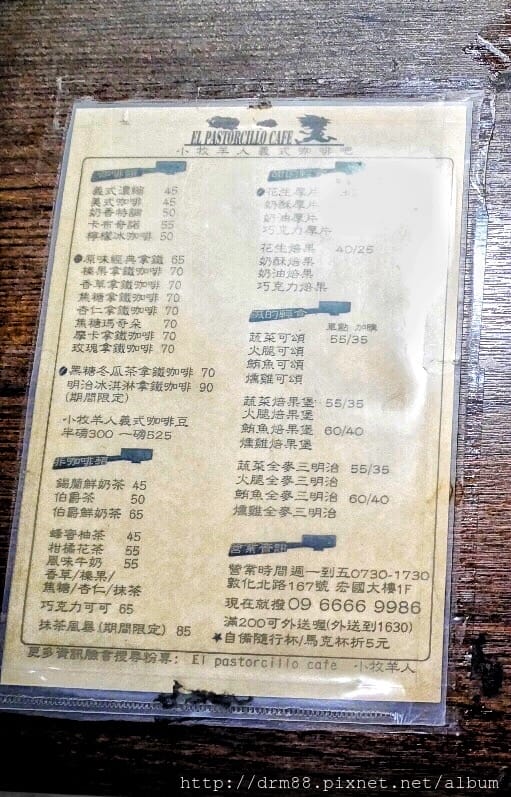 EL PASTORCILLO CAFE
小牧羊人義式咖啡吧
咖啡類
義式濃縮 45
美式咖啡 45
奶香特調 50
卡布奇諾 55
檸檬冰咖啡 50
原味經典拿鐵 65
榛果拿鐵咖啡 70
香草拿鐵咖啡 70
焦糖拿鐵咖啡 70
杏仁拿鐵咖啡 70
焦糖瑪奇朵 70
摩卡拿鐵咖啡 70
玫瑰拿鐵咖啡 70
黑糖冬瓜茶拿鐵咖啡 70
明治冰淇淋拿鐵咖啡 90
(期間限定)
小牧羊人義式咖啡豆
半磅300 一磅525
非咖啡類
錫蘭鮮奶茶 45
伯爵茶 50
伯爵鮮奶茶 65
蜂蜜柚茶 45
柑橘花茶 55
風味牛奶 55
香草/榛果/
焦糖/杏仁/抹茶
巧克力可可 65
抹茶風暴(期間限定) 85
花生厚片
奶酥厚片
奶油厚片
巧克力厚片
花生焙果 40/25
奶酥焙果
奶油焙果
巧克力焙果
鹹的輕食
單點 加購
蔬菜可頌 55/35
火腿可頌
鮪魚可頌
燻雞可頌
蔬菜焙果堡 55/35
火腿焙果堡
鮪魚焙果堡 60/40
燻雞焙果堡
蔬菜全麥三明治 55/35
火腿全麥三明治
鮪魚全麥三明治 60/40
燻雞全麥三明治
營業資訊
營業時間週一到五0730-1730
敦化北路167號 宏國大樓1F
現在就撥09 6666 9986
滿200可外送喔(外送到1630)
★自備隨行杯/馬克杯折5元
更多資訊臉書搜尋粉專: El pastorcillo cafe 小牧羊人
http://drm88.pixnet.net/album